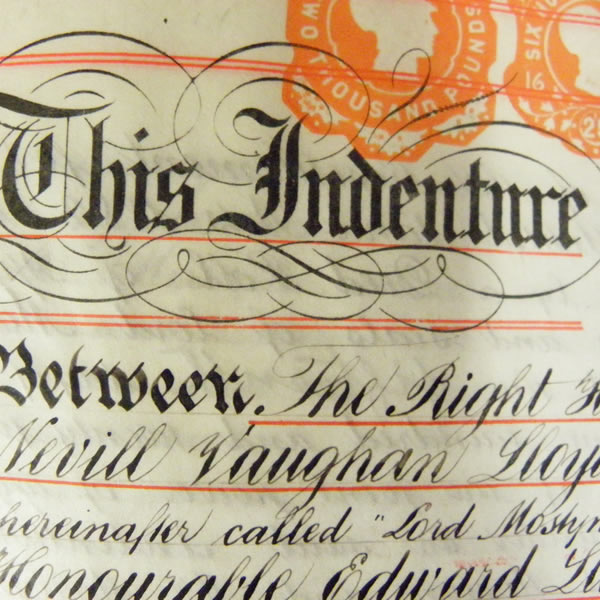 TWO THOUSAND POUNDS
SIX
16
This Indenture
Between The Right
Nevill Vaughan Lloyd
hereinafter called "Lord Mostyn
Honourable Edward